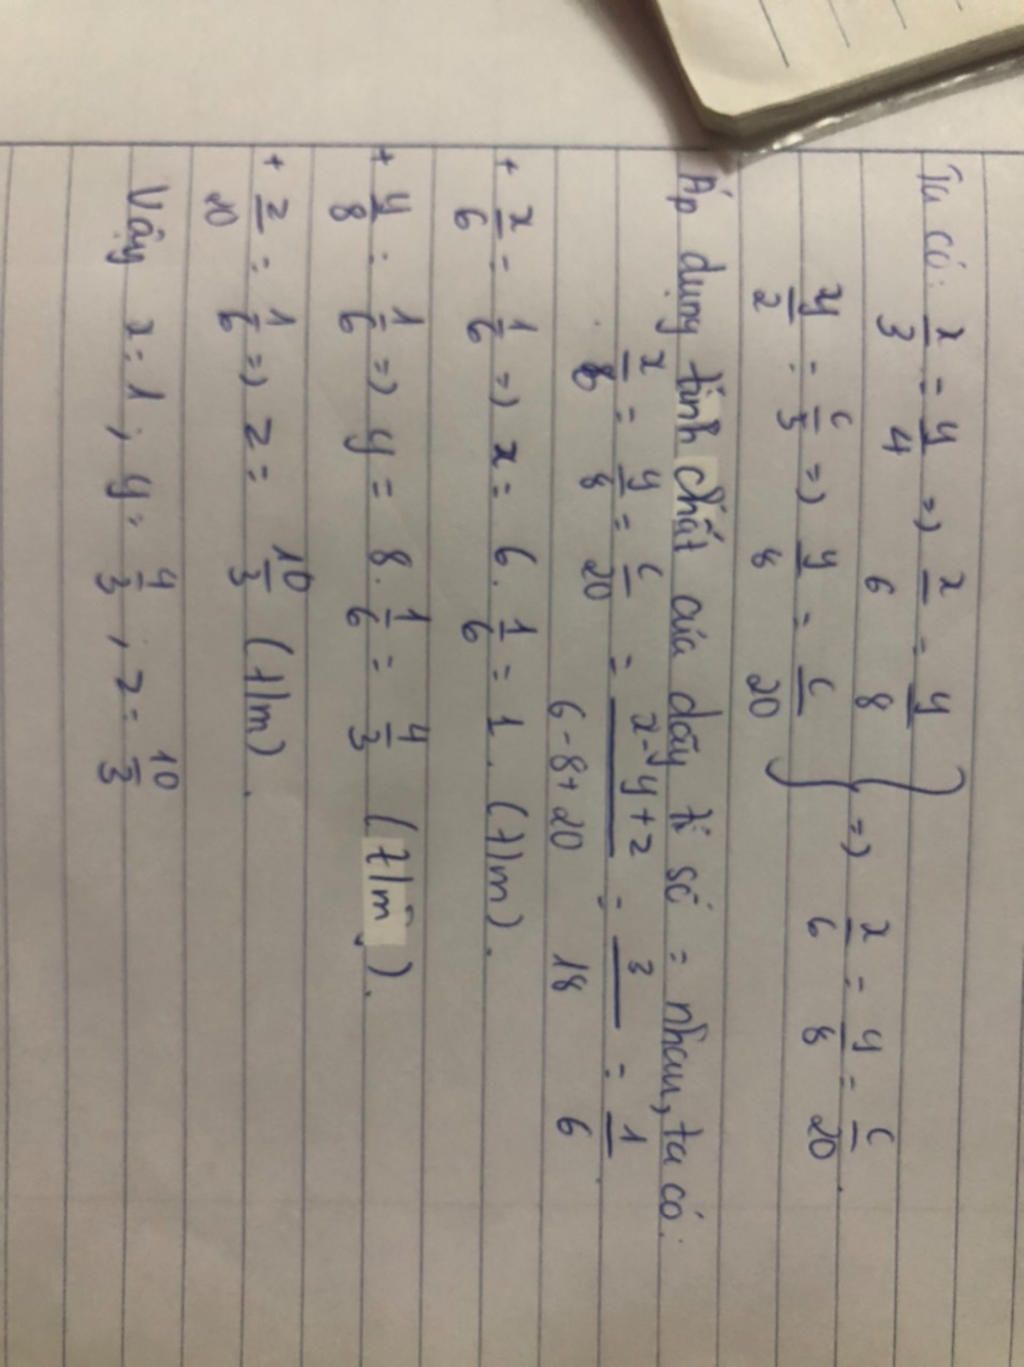 Ta có: x/3 = y/4 => x/6 = y/8
y/2 = c/5 => y/8 = c/20 } => x/6 = y/8 = c/20.
Áp dụng tính chất của dãy tỉ số = nhau, ta có:
x/6 = y/8 = c/20 = x-y+z/6-8+20 = 3/18 = 1/6.
+ x/6 = 1/6 => x = 6. 1/6 = 1. (t/m).
+ y/8 = 1/6 => y = 8. 1/6 = 4/3 (t/m).
+ z/20 = 1/6 => z = 10/3 (t/m).
Vậy x = 1; y = 4/3; z = 10/3